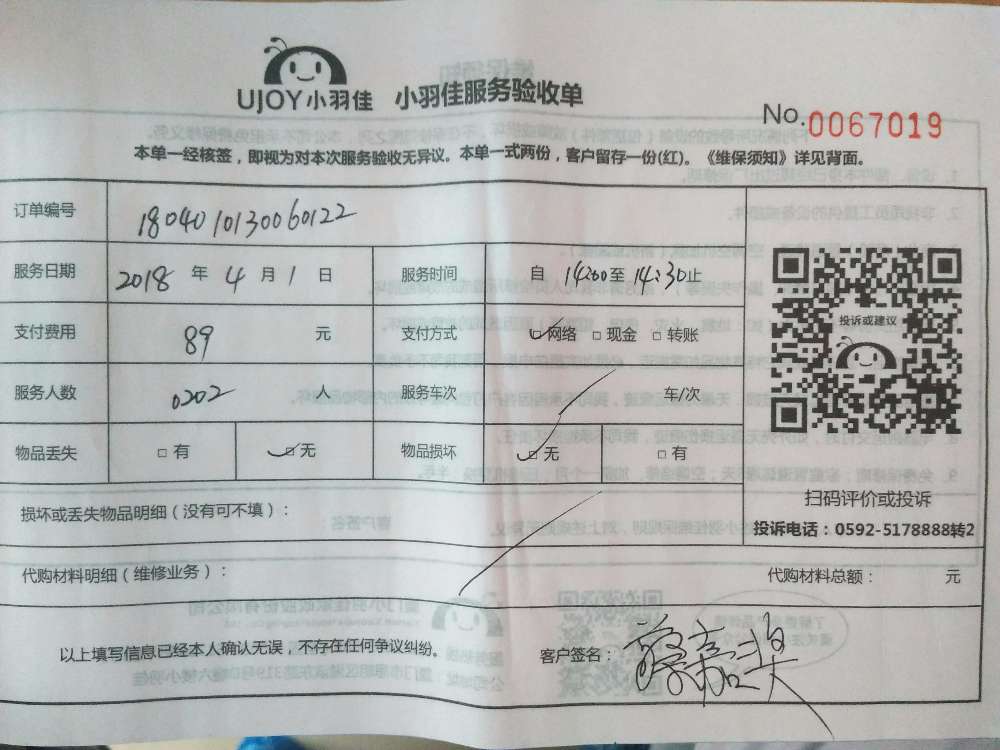 UJOY小羽佳 小羽佳服务验收单
No.0067019
本单一经核签，即视为对本次服务验收无异议。本单一式两份，客户留存一份(红)。《维保须知》详见背面。
订单编号 1804010130060122
服务日期 2018 年 4 月 1 日 服务时间 自 14:00至 14:30止
支付费用 89 元 支付方式 ☑网络 □现金 □转账
服务人数 0202 人 服务车次 车/次
物品丢失 □有 ☑无 物品损坏 ☑无 □有
投诉或建议
扫码评价或投诉
投诉电话：0592-5178888转2
损坏或丢失物品明细（没有可不填）：
代购材料明细（维修业务）： 代购材料总额： 元
以上填写信息已经本人确认无误，不存在任何争议纠纷。 客户签名：